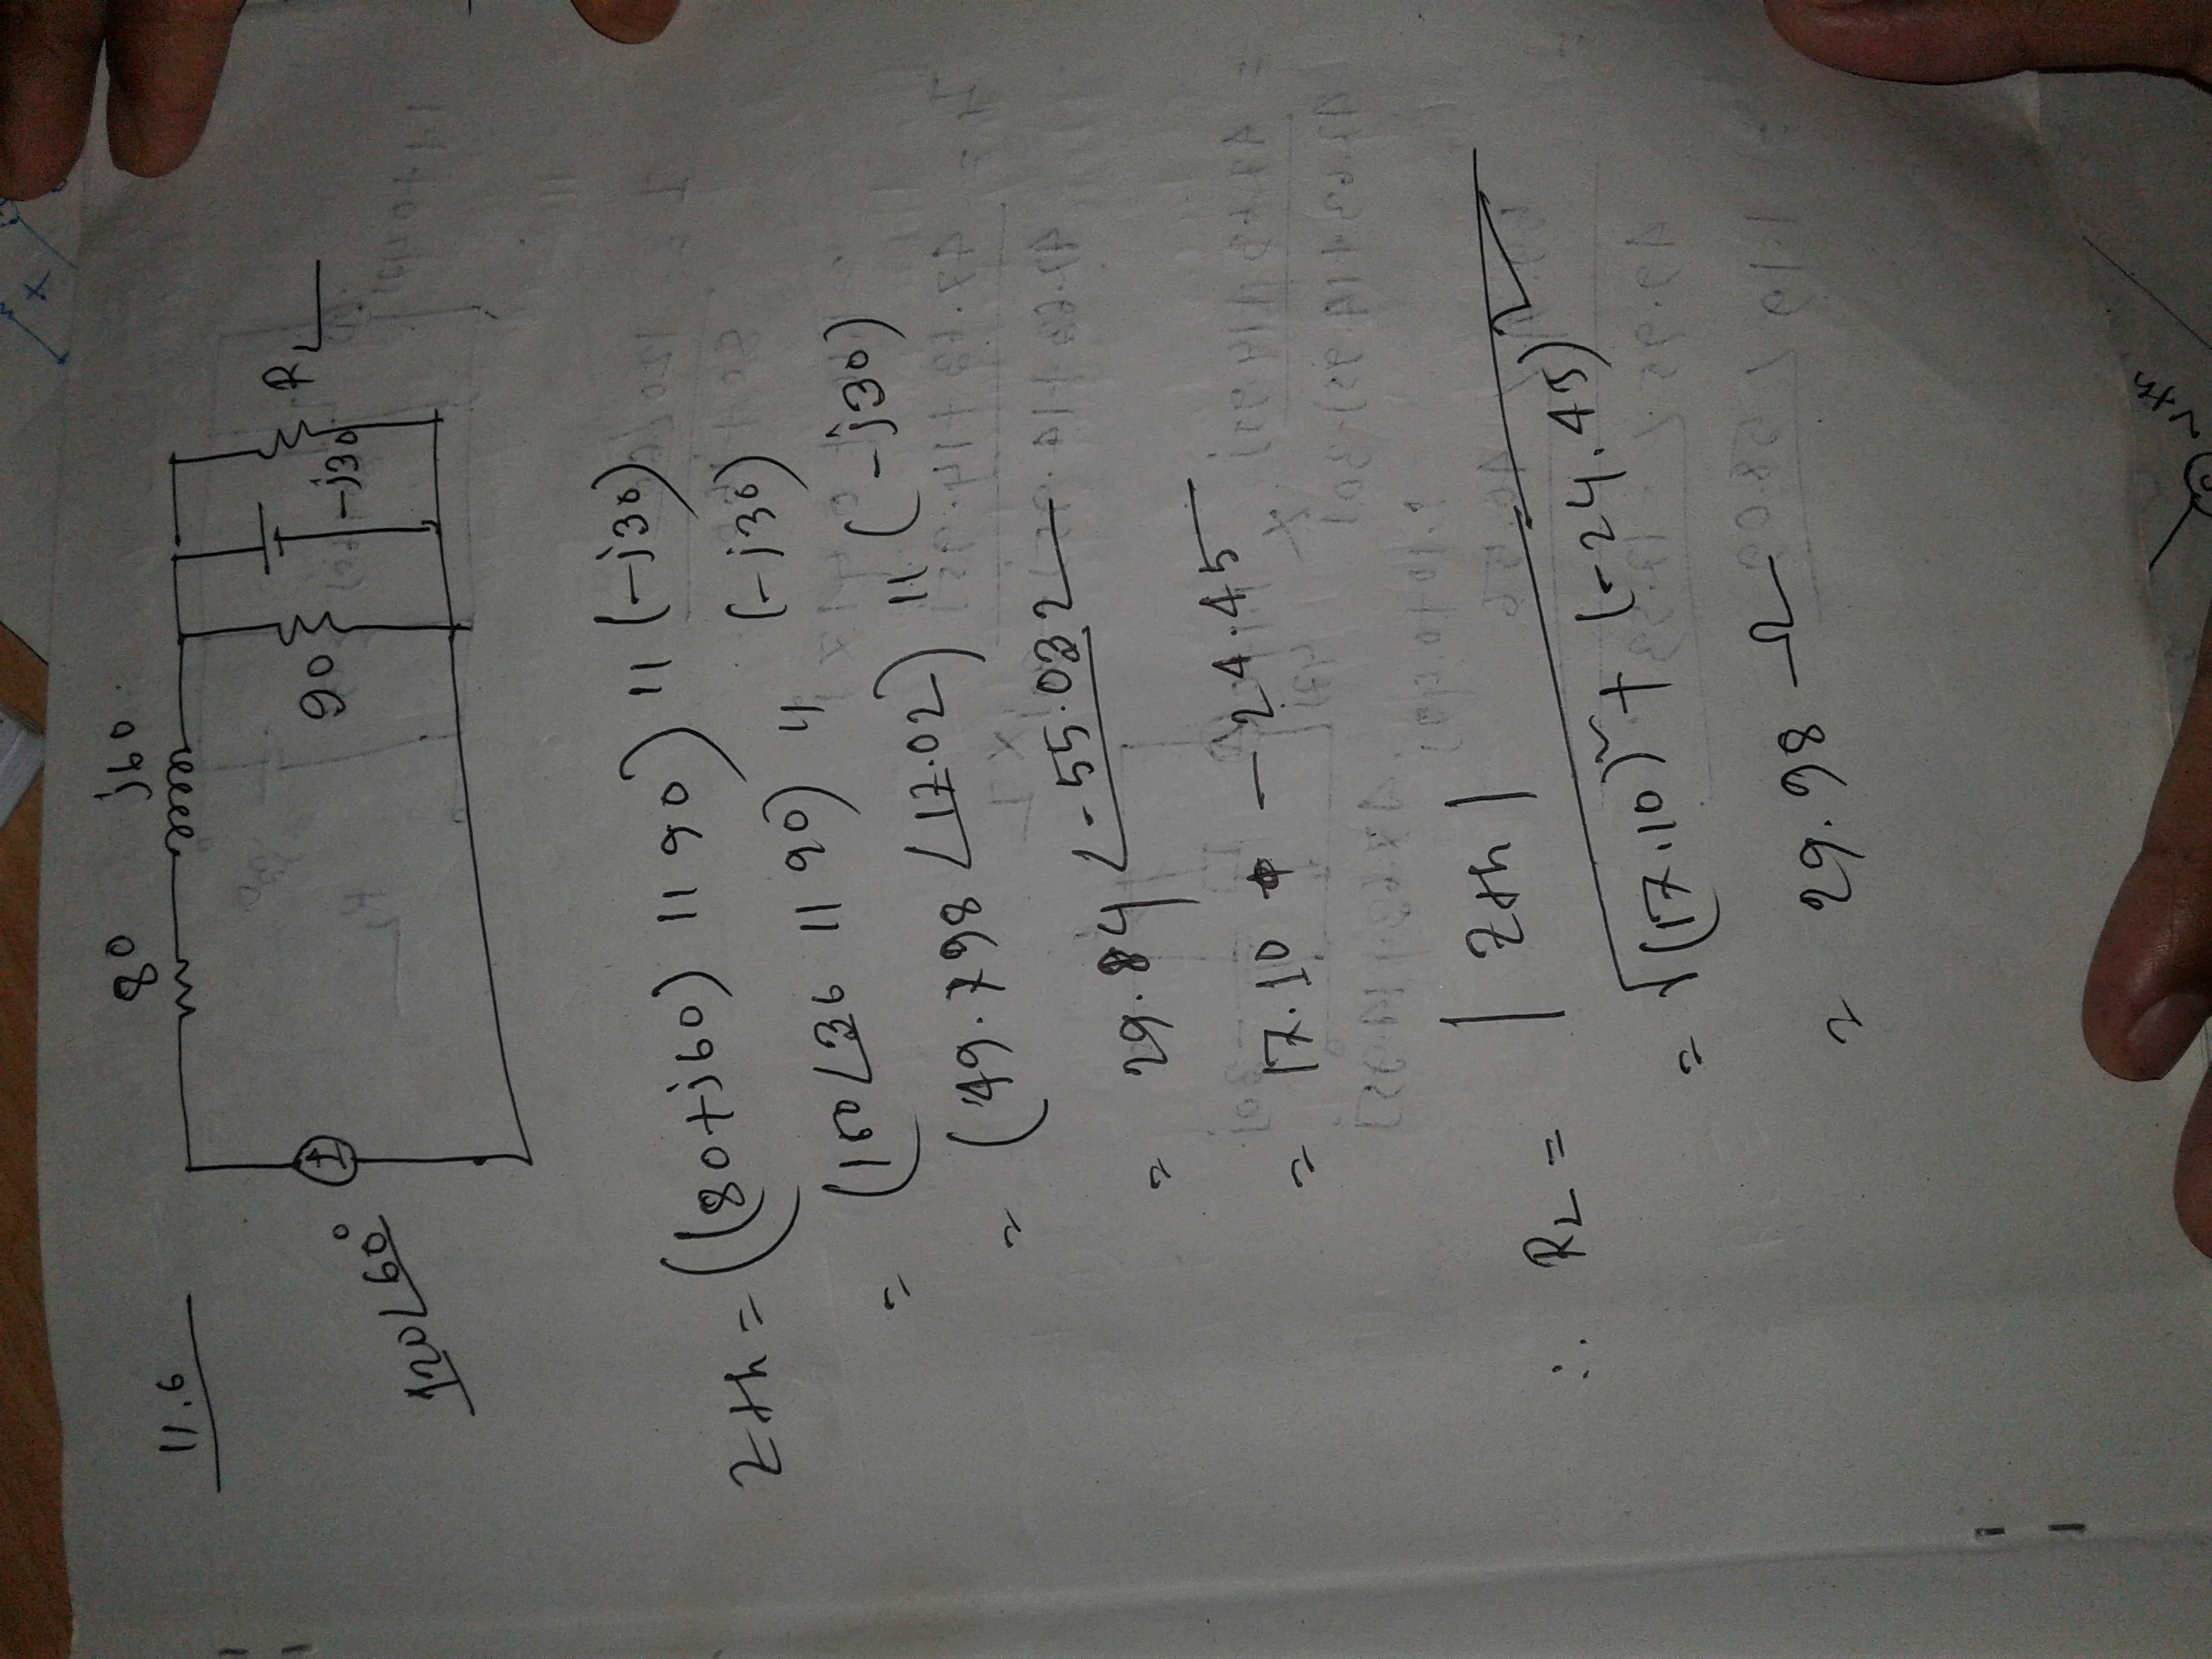 11.6
80 j60
120∠60°
90
-j30
RL
Zth = ((80+j60) || 90) || (-j30)
= (100∠36 || 90) || (-j30)
= (49.798 ∠17.02) || (-j30)
= 29.84 ∠-55.032
= 17.10 + -24.45
∴ RL = |Zth|
= √(17.10)² + (-24.45)²
= 29.98 Ω
Vth